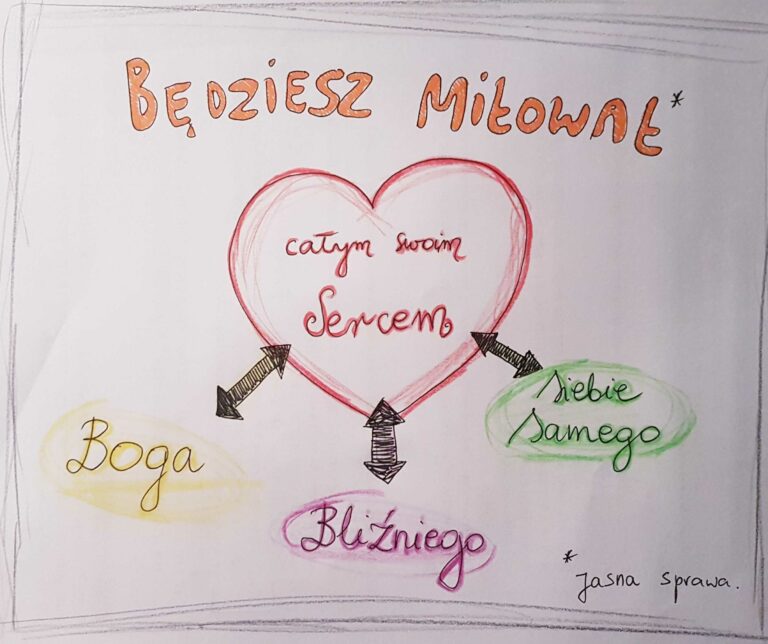 BĘDZIESZ MIŁOWAŁ*
całym swoim
Sercem
Boga
Bliźniego
siebie
samego
* Jasna sprawa.